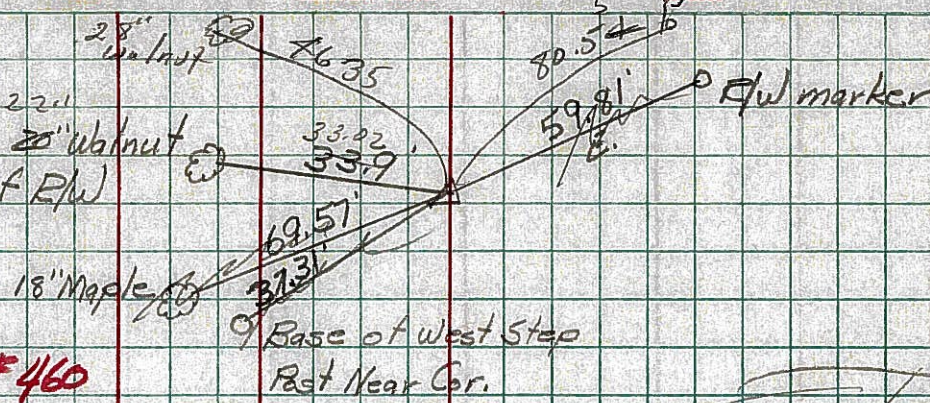 28"
walnut
46.35
80.54
R/W marker
59.81'
22"
20" Walnut
33.92
33.9'
f R/W
69.57'
18" Maple
37.31'
Base of West Step
Post Near Cor.
#460